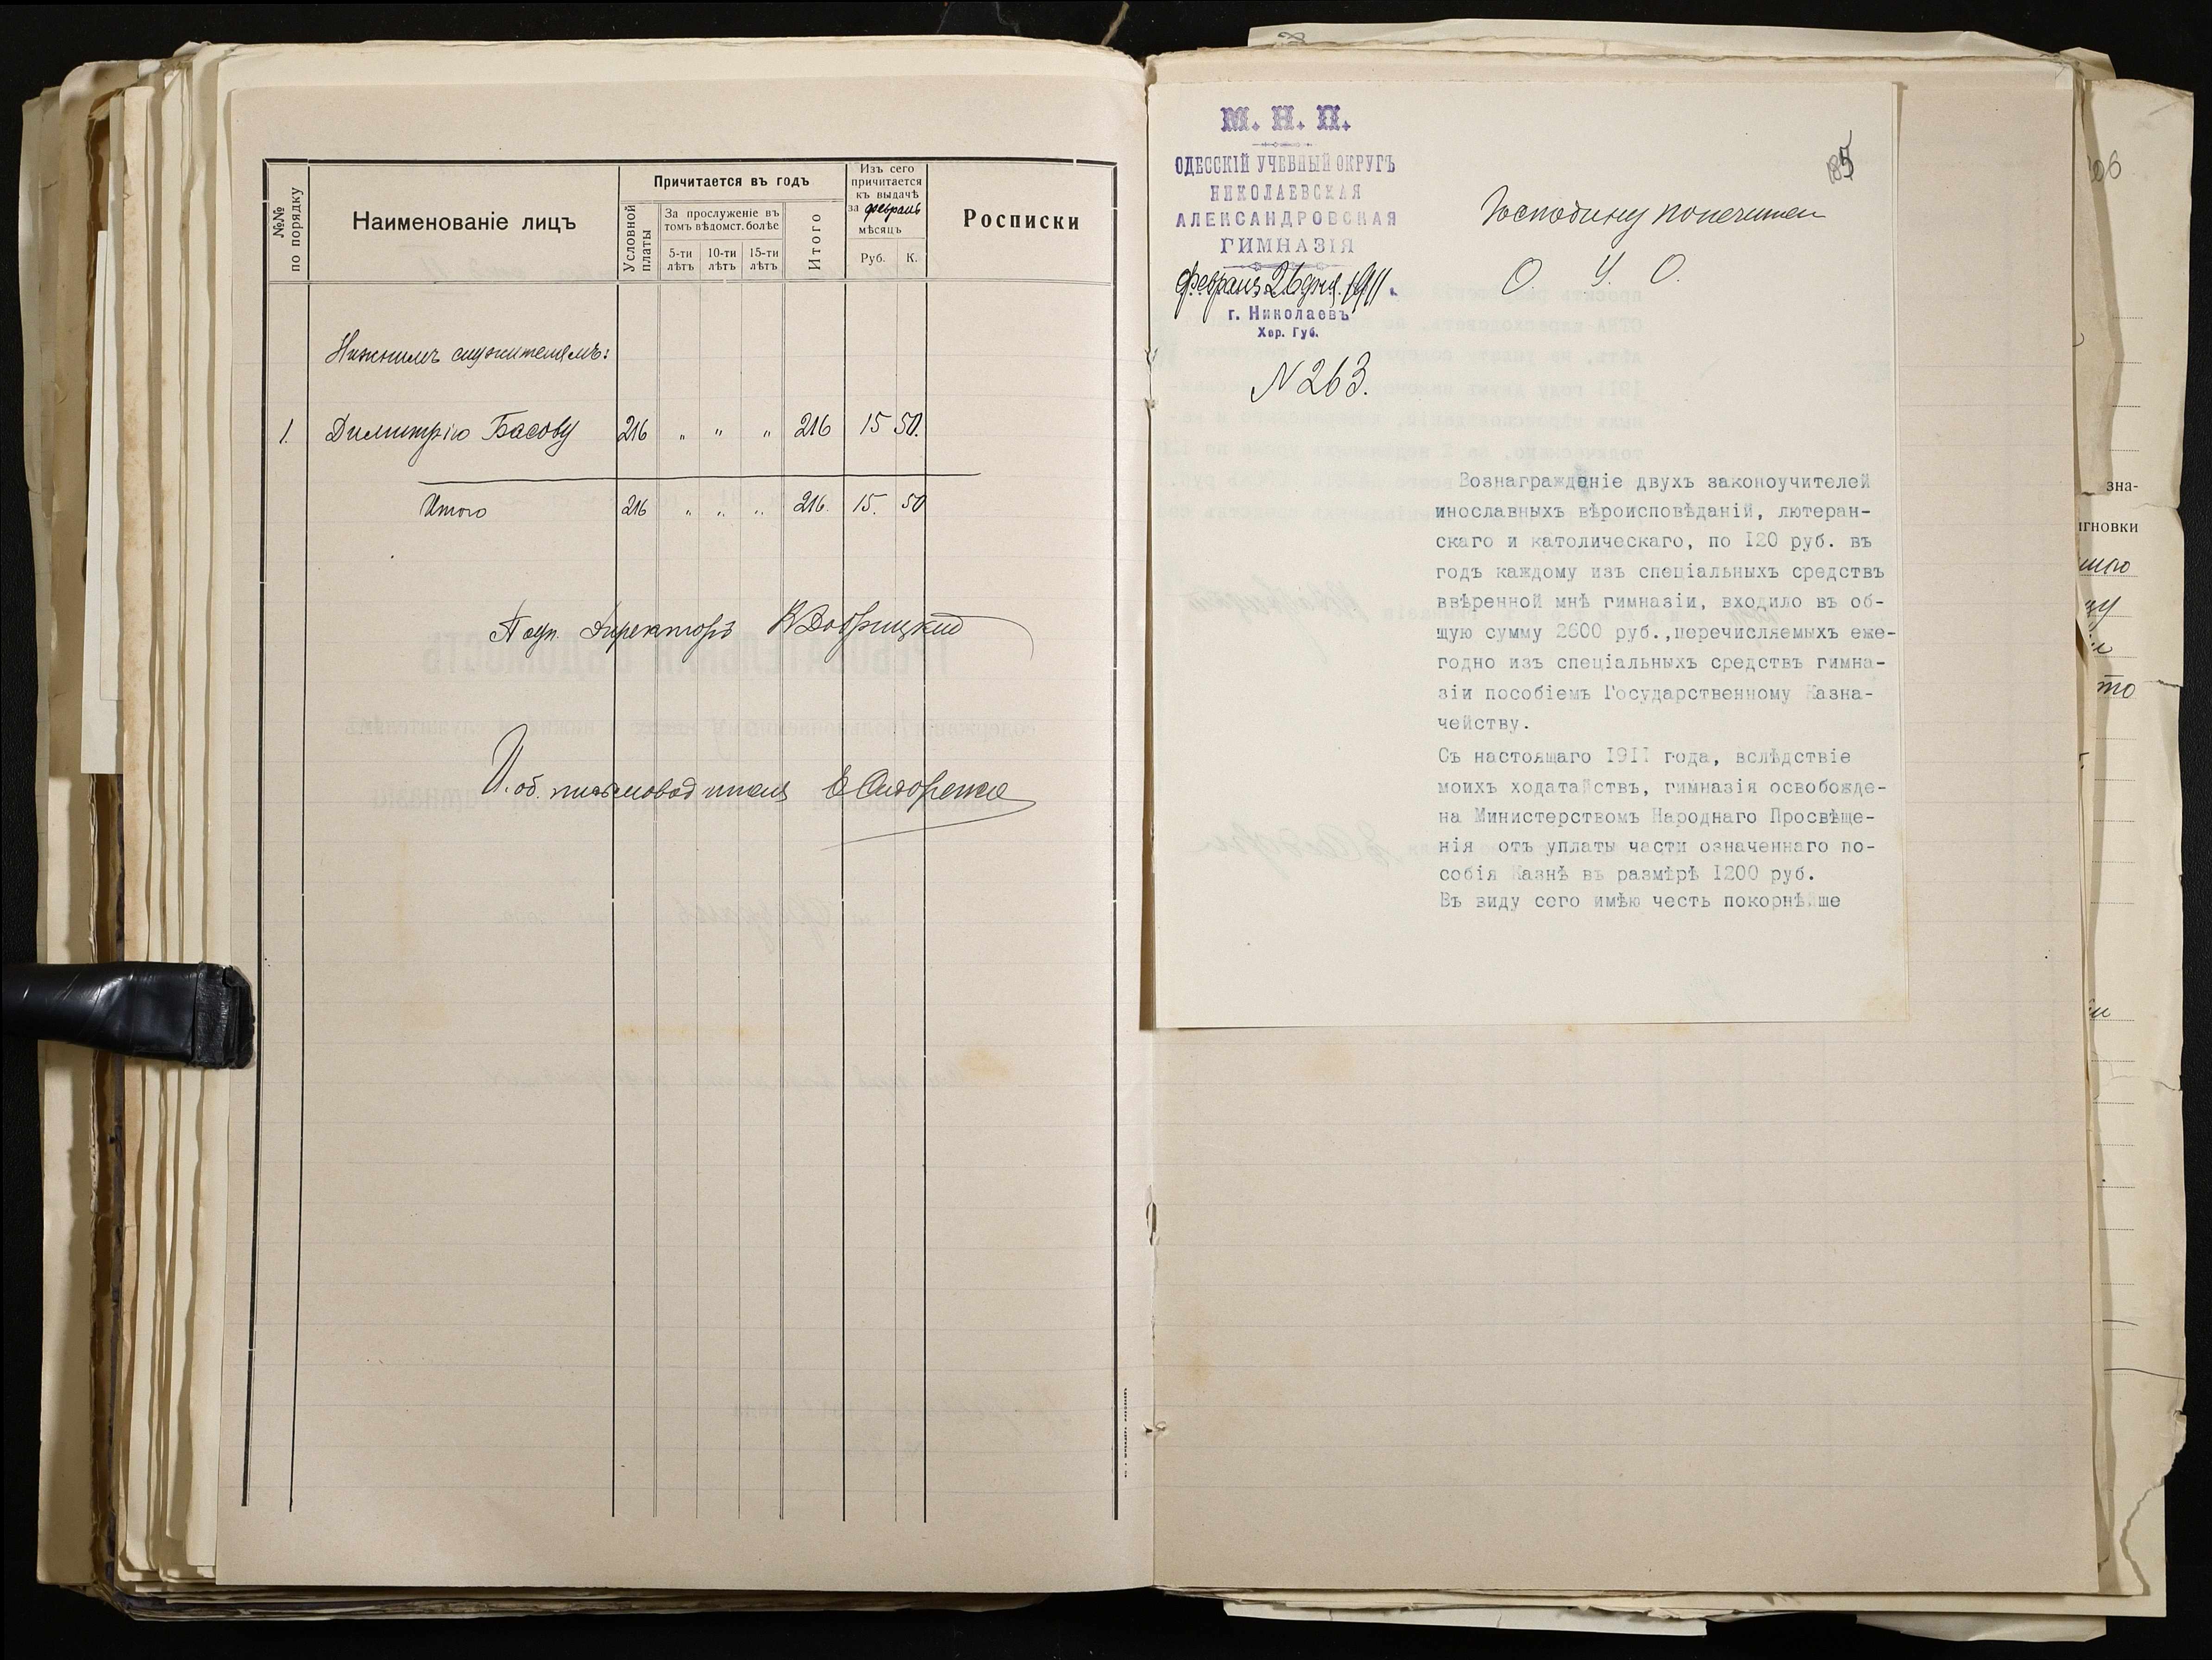 №№ по порядку
Наименованіе лицъ
Причитается въ годъ
Условной платы
За прослуженіе въ
томъ вѣдомст. болѣе
5-ти лѣтъ
10-ти лѣтъ
15-ти лѣтъ
Итого
Изъ сего
причитается
къ выдачѣ
за февраль
мѣсяцъ
Руб. К.
Росписки
Нижнимъ служителямъ:
1. Димитрію Басову 216 " " " 216 15 50.
Итого 216 " " " 216. 15. 50
Подп. Директоръ
И. об. письмоводителя Е Сидоренко
М. Н. П.
ОДЕССКІЙ УЧЕБНЫЙ ОКРУГЪ
НИКОЛАЕВСКАЯ
АЛЕКСАНДРОВСКАЯ
ГИМНАЗІЯ
Февраля 26 дня 1911 г.
г. Николаевъ
Хер. Губ.
N 263.
185
Господину Попечителю
О. У. О.
Вознагражденіе двухъ законоучителей
инославныхъ вѣроисповѣданій, лютеран-
скаго и католическаго, по I20 руб. въ
годъ каждому изъ спеціальныхъ средствъ
ввѣренной мнѣ гимназіи, входило въ об-
щую сумму 2600 руб.,перечисляемыхъ еже-
годно изъ спеціальныхъ средствъ гимна-
зіи пособіемъ Государственному Казна-
чейству.
Съ настоящаго I9II года, вслѣдствіе
моихъ ходатайствъ, гимназія освобожде-
на Министерствомъ Народнаго Просвѣще-
нія отъ уплаты части означеннаго по-
собія Казнѣ въ размѣрѣ I200 руб.
Въ виду сего имѣю честь покорнѣйше
зна-
игновки